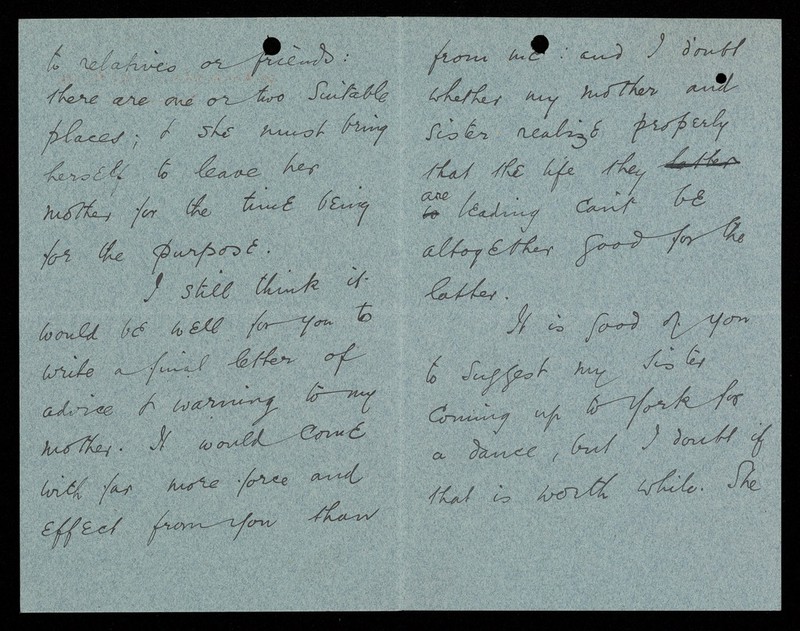 to relatives or friends:
there are one or two suitable
places; & she must bring
herself to leave her
mother for the time being
for the purpose.
I still think it
would be well for you to
write a final letter of
advice & warning to my
mother. It would come
with far more force and
effect from you than
from me: and I doubt
whether my mother and
sister realize properly
that the life they latter
are
to leading can't be
altogether good for the
latter.
It is good of you
to suggest my sister
coming up to York for
a dance, but I doubt if
that is worth while. She